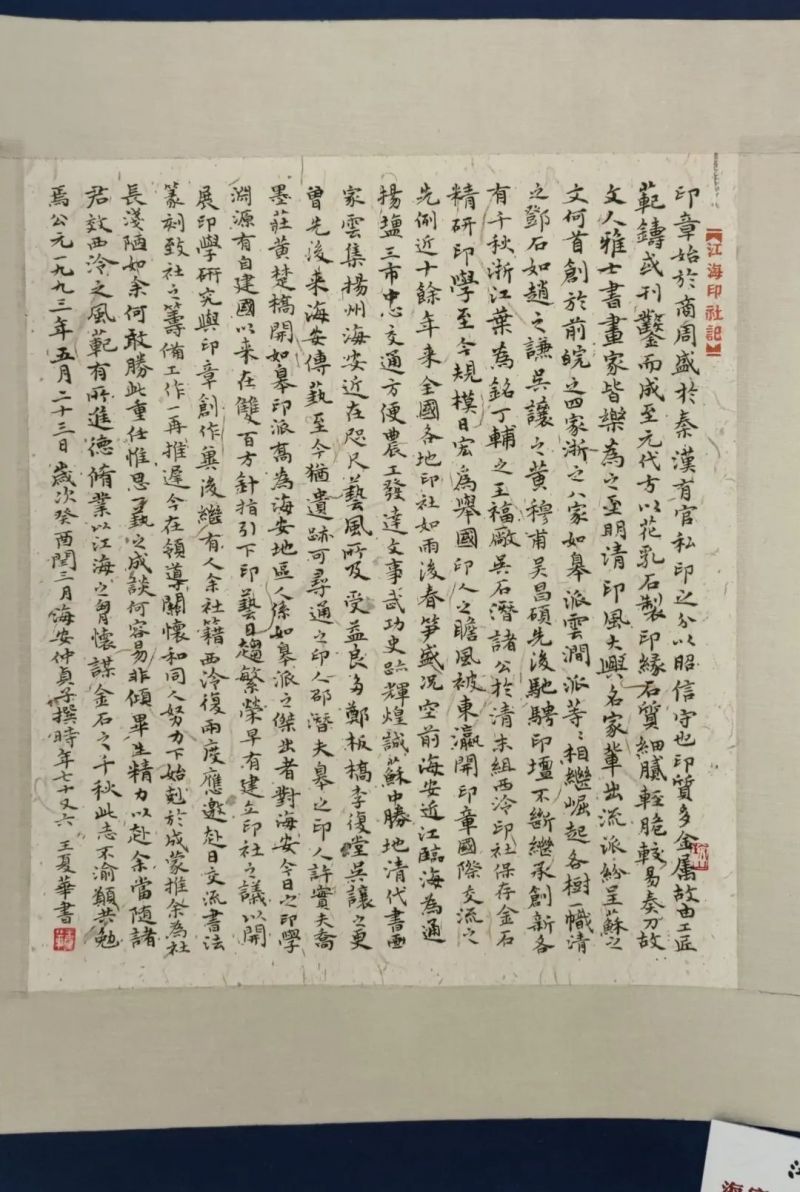 【江海印社記】
印章始於商周盛於秦漢有官私印之分以昭信守也印質多金属故由工匠
範鑄或刊鑿而成至元代方以花乳石製印縁石質細膩輕脆較易奏刀故
文人雅士書畫家皆樂為之至明清印風大興名家輩出流派紛呈蘇之
文何首創於前皖之四家浙之八家如皋派雲澗派等等相繼崛起各樹一幟清
之鄧石如趙之謙吳讓之黄穆甫吴昌碩先後馳騁印壇不斷繼承創新各
有千秋浙江葉為銘丁輔之王福厰吳石潛諸公於清末組西泠印社保存金石
精研印學至今規模日宏為舉國印人之瞻風被東瀛開印章國際交流之
先例近十餘年来全國各地印社如雨後春笋盛况空前海安近江臨海為通
揚鹽三市中心交通方便農工發達文事武功史跡輝煌誠蘇中勝地清代書画
家雲集揚州海安近在咫尺藝風所及受益良多鄭板橋李復堂吳讓之更
曾先後来海安傳藝至今猶遺跡可尋通之印人邵潛夫皋之印人許實夫喬
墨莊黄楚橋開如皋印派喬為海安地區人係如皋派之傑出者對海安今日之印學
淵源有自建國以来在雙百方針指引下印藝日趨繁榮早有建立印社之議以開
展印學研究與印章創作冀後繼有人余社籍西泠復兩度應邀赴日交流書法
篆刻致社之籌備工作一再推遲今在領導關懷和同人努力下始尅於成蒙推余為社
長淺陋如余何敢勝此重任惟思藝之成談何容易非傾畢生精力以赴余當随諸
君效西泠之風範有所進德脩業以江海之胷懷謀金石之千秋此志不渝願共勉
焉公元一九九三年五月二十三日歲次癸酉閏三月海安仲貞子撰時年七十又六王夏華書